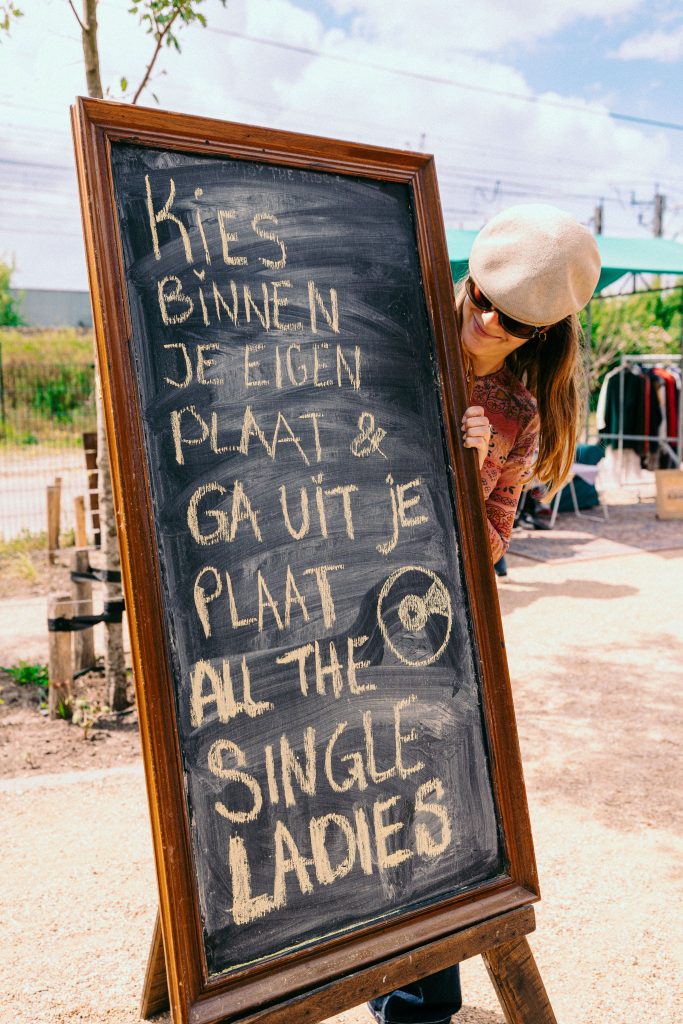 KiES
BiNNEN
JE EIGEN
PLAAT &
GA UiT jE
PLAAT
ALL THE
SiNGLE
LADIES